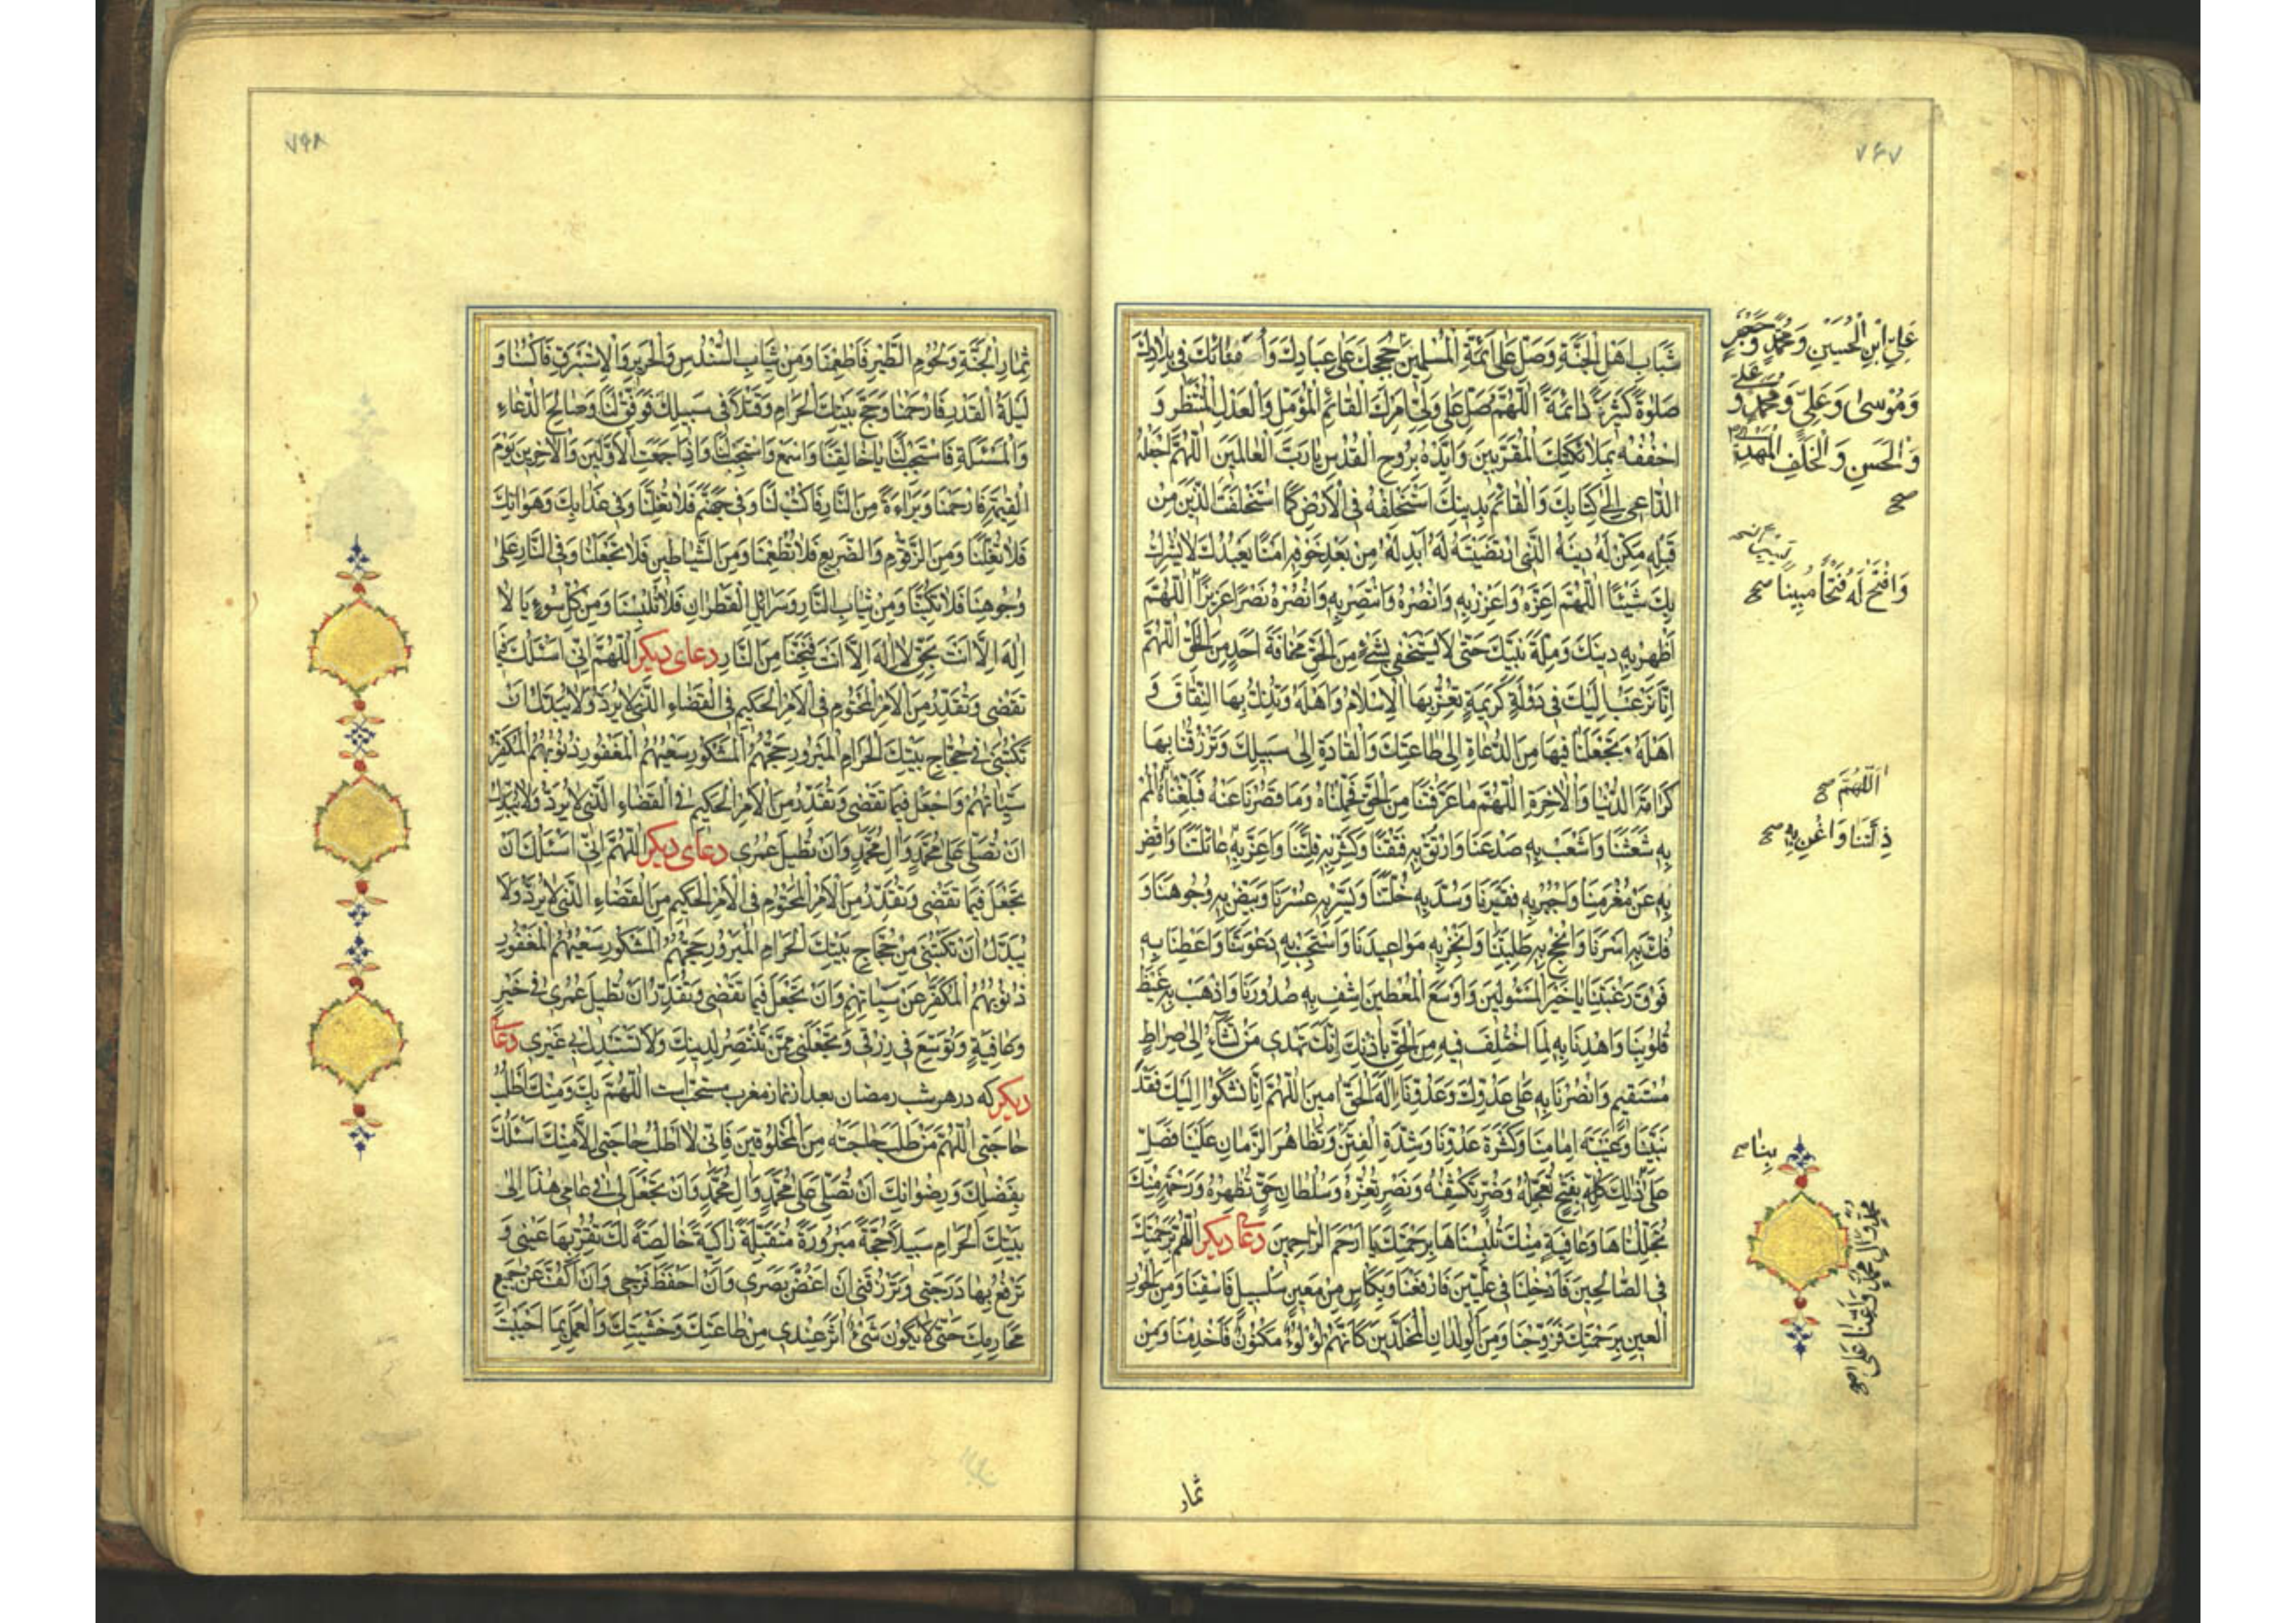 ٧٤٧
شَبَابِ اَهْلِ الْجَنَّةِ وَصَلِّ عَلٰى اَئِمَّةِ الْمُسْلِمِينَ حُجَجِكَ عَلٰى عِبَادِكَ وَاُمَنَائِكَ فِي بِلَادِكَ
صَلٰوةً كَثِيرَةً دَائِمَةً اَللّٰهُمَّ صَلِّ عَلٰى وَلِيِّ اَمْرِكَ الْقَائِمِ الْمُؤَمَّلِ وَالْعَدْلِ الْمُنْتَظَرِ وَ
احْفُفْهُ بِمَلَائِكَتِكَ الْمُقَرَّبِينَ وَاَيِّدْهُ بِرُوحِ الْقُدُسِ يَا رَبَّ الْعَالَمِينَ اَللّٰهُمَّ اجْعَلْهُ
الدَّاعِيَ اِلٰى كِتَابِكَ وَالْقَائِمَ بِدِينِكَ اسْتَخْلِفْهُ فِي الْاَرْضِ كَمَا اسْتَخْلَفْتَ الَّذِينَ مِنْ
قَبْلِهِ مَكِّنْ لَهُ دِينَهُ الَّذِي ارْتَضَيْتَهُ لَهُ اَبْدِلْهُ مِنْ بَعْدِ خَوْفِهِ اَمْنًا يَعْبُدُكَ لَا يُشْرِكُ
بِكَ شَيْئًا اَللّٰهُمَّ اَعِزَّهُ وَاَعْزِزْ بِهِ وَانْصُرْهُ وَانْتَصِرْ بِهِ وَانْصُرْهُ نَصْرًا عَزِيزًا اَللّٰهُمَّ
اَظْهِرْ بِهِ دِينَكَ وَمِلَّةَ نَبِيِّكَ حَتّٰى لَا يَسْتَخْفِيَ بِشَيْءٍ مِنَ الْحَقِّ مَخَافَةَ اَحَدٍ مِنَ الْخَلْقِ اَللّٰهُمَّ
اِنَّا نَرْغَبُ اِلَيْكَ فِي دَوْلَةٍ كَرِيمَةٍ تُعِزُّ بِهَا الْاِسْلَامَ وَاَهْلَهُ وَتُذِلُّ بِهَا النِّفَاقَ وَ
اَهْلَهُ وَتَجْعَلُنَا فِيهَا مِنَ الدُّعَاةِ اِلٰى طَاعَتِكَ وَالْقَادَةِ اِلٰى سَبِيلِكَ وَتَرْزُقُنَا بِهَا
كَرَامَةَ الدُّنْيَا وَالْاٰخِرَةِ اَللّٰهُمَّ مَا عَرَّفْتَنَا مِنَ الْحَقِّ فَحَمِّلْنَاهُ وَمَا قَصُرْنَا عَنْهُ فَبَلِّغْنَاهُ الْمُمْ
بِهِ شَعَثَنَا وَاشْعَبْ بِهِ صَدْعَنَا وَارْتُقْ بِهِ فَتْقَنَا وَكَثِّرْ بِهِ قِلَّتَنَا وَاَعْزِزْ بِهِ عَائِلَنَا وَاقْضِ
بِهِ عَنْ مُغْرَمِنَا وَاجْبُرْ بِهِ فَقِيرَنَا وَسُدَّ بِهِ خُلَّتَنَا وَيَسِّرْ بِهِ عُسْرَنَا وَبَيِّضْ بِهِ وُجُوهَنَا وَ
فُكَّ بِهِ اَسْرَنَا وَاَنْجِحْ بِهِ طَلِبَتَنَا وَاَنْجِزْ بِهِ مَوَاعِيدَنَا وَاسْتَجِبْ بِهِ دَعْوَتَنَا وَاَعْطِنَا بِهِ
فَوْقَ رَغْبَتِنَا يَا خَيْرَ الْمَسْئُولِينَ وَاَوْسَعَ الْمُعْطِينَ اشْفِ بِهِ صُدُورَنَا وَاَذْهِبْ بِهِ غَيْظَ
قُلُوبِنَا وَاهْدِنَا بِهِ لِمَا اخْتُلِفَ فِيهِ مِنَ الْحَقِّ بِاِذْنِكَ اِنَّكَ تَهْدِي مَنْ تَشَاءُ اِلٰى صِرَاطٍ
مُسْتَقِيمٍ وَانْصُرْنَا بِهِ عَلٰى عَدُوِّكَ وَعَدُوِّنَا اِلٰهَ الْحَقِّ اٰمِينَ اَللّٰهُمَّ اِنَّا نَشْكُوا اِلَيْكَ فَقْدَ
نَبِيِّنَا وَغَيْبَةَ اِمَامِنَا وَكَثْرَةَ عَدُوِّنَا وَشِدَّةَ الْفِتَنِ وَتَظَاهُرَ الزَّمَانِ عَلَيْنَا فَصَلِّ
عَلٰى ذٰلِكَ كُلِّهِ بِفَتْحٍ تُعَجِّلُهُ وَضُرٍّ تَكْشِفُهُ وَنَصْرٍ تُعِزُّهُ وَسُلْطَانِ حَقٍّ تُظْهِرُهُ وَرَحْمَةٍ مِنْكَ
تُجَلِّلُنَاهَا وَعَافِيَةٍ مِنْكَ تُلْبِسُنَاهَا بِرَحْمَتِكَ يَا اَرْحَمَ الرَّاحِمِينَ دعای دیکر اَللّٰهُمَّ بِرَحْمَتِكَ
فِي الصَّالِحِينَ فَاَدْخِلْنَا فِي عِلِّيِّينَ فَارْفَعْنَا وَبِكَأْسٍ مِنْ مَعِينٍ سَلْسَبِيلٍ فَاسْقِنَا وَمِنَ الْحُورِ
الْعِينِ بِرَحْمَتِكَ فَزَوِّجْنَا وَمِنَ الْوِلْدَانِ الْمُخَلَّدِينَ كَاَنَّهُمْ لُؤْلُؤٌ مَكْنُونٌ فَاَخْدِمْنَا وَمِنْ
ثمار
عَلِيِّ ابْنِ الْحُسَيْنِ وَمُحَمَّدٍ وَجَعْفَرٍ
وَمُوسٰى وَعَلِيٍّ وَمُحَمَّدٍ وَعَلِيٍّ
وَالْحَسَنِ وَالْخَلَفِ الْمَهْدِيِّ
صح
وَافْتَحْ لَهُ فَتْحًا مُبِينًا صح
اَللّٰهُمَّ صح
ذِلَّتَنَا وَاَغْنِ بِهِ صح
بِنَا صح
مُحَمَّدٍ وَاٰلِ مُحَمَّدٍ وَاَعِنَّا عَلٰى صح
٧٤٨
ثِمَارِ الْجَنَّةِ وَلُحُومِ الطَّيْرِ فَاَطْعِمْنَا وَمِنْ ثِيَابِ السُّنْدُسِ وَالْحَرِيرِ وَالْاِسْتَبْرَقِ فَاكْسُنَا وَ
لَيْلَةَ الْقَدْرِ فَارْحَمْنَا وَحَجَّ بَيْتِكَ الْحَرَامِ وَقَتْلًا فِي سَبِيلِكَ فَوَفِّقْ لَنَا وَصَالِحَ الدُّعَاءِ
وَالْمَسْئَلَةِ فَاسْتَجِبْ لَنَا يَا خَالِقَنَا وَاسْمَعْ وَاسْتَجِبْ لَنَا وَاِذَا جَمَعْتَ الْاَوَّلِينَ وَالْاٰخِرِينَ يَوْمَ
الْقِيٰمَةِ فَارْحَمْنَا وَبَرَاءَةً مِنَ النَّارِ فَاكْتُبْ لَنَا وَفِي جَهَنَّمَ فَلَا تَغُلَّنَا وَفِي عَذَابِكَ وَهَوَانِكَ
فَلَا تَبْتَلِنَا وَمِنَ الزَّقُّومِ وَالضَّرِيعِ فَلَا تُطْعِمْنَا وَمِنَ الشَّيَاطِينِ فَلَا تَجْعَلْنَا وَفِي النَّارِ عَلٰى
وُجُوهِنَا فَلَا تَكُبَّنَا وَمِنْ ثِيَابِ النَّارِ وَسَرَابِيلِ الْقَطِرَانِ فَلَا تُلْبِسْنَا وَمِنْ كُلِّ سُوءٍ يَا لَا
اِلٰهَ اِلَّا اَنْتَ بِحَقِّ لَا اِلٰهَ اِلَّا اَنْتَ فَنَجِّنَا مِنَ النَّارِ دعای دیکر اَللّٰهُمَّ اِنِّي اَسْئَلُكَ فِيمَا
تَقْضِي وَتُقَدِّرُ مِنَ الْاَمْرِ الْمَحْتُومِ فِي الْاَمْرِ الْحَكِيمِ فِي الْقَضَاءِ الَّذِي لَا يُرَدُّ وَلَا يُبَدَّلُ اَنْ
تَكْتُبَنِي فِي حُجَّاجِ بَيْتِكَ الْحَرَامِ الْمَبْرُورِ حَجُّهُمُ الْمَشْكُورِ سَعْيُهُمُ الْمَغْفُورِ ذُنُوبُهُمُ الْمُكَفَّرِ
سَيِّئَاتُهُمْ وَاجْعَلْ فِيمَا تَقْضِي وَتُقَدِّرُ مِنَ الْاَمْرِ الْحَكِيمِ فِي الْقَضَاءِ الَّذِي لَا يُرَدُّ وَلَا يُبَدَّلُ
اَنْ تُصَلِّيَ عَلٰى مُحَمَّدٍ وَاٰلِ مُحَمَّدٍ وَاَنْ تُطِيلَ عُمُرِي دعای دیکر اَللّٰهُمَّ اِنِّي اَسْئَلُكَ اَنْ
تَجْعَلَ فِيمَا تَقْضِي وَتُقَدِّرُ مِنَ الْاَمْرِ الْمَحْتُومِ فِي الْاَمْرِ الْحَكِيمِ مِنَ الْقَضَاءِ الَّذِي لَا يُرَدُّ وَلَا
يُبَدَّلُ اَنْ تَكْتُبَنِي مِنْ حُجَّاجِ بَيْتِكَ الْحَرَامِ الْمَبْرُورِ حَجُّهُمُ الْمَشْكُورِ سَعْيُهُمُ الْمَغْفُورِ
ذُنُوبُهُمُ الْمُكَفَّرِ عَنْ سَيِّئَاتِهِمْ وَاَنْ تَجْعَلَ فِيمَا تَقْضِي وَتُقَدِّرُ اَنْ تُطِيلَ عُمُرِي فِي خَيْرٍ
وَعَافِيَةٍ وَتُوَسِّعَ فِي رِزْقِي وَتَجْعَلَنِي مِمَّنْ تَنْتَصِرُ لِدِينِكَ وَلَا تَسْتَبْدِلْ بِي غَيْرِي دعای
دیکر که در هر شب رمضان بعد از نماز مغرب مستحب است اَللّٰهُمَّ بِكَ وَمِنْكَ اَطْلُبُ
حَاجَتِي اَللّٰهُمَّ مَنْ طَلَبَ حَاجَتَهُ مِنَ الْمَخْلُوقِينَ فَاِنِّي لَا اَطْلُبُ حَاجَتِي اِلَّا مِنْكَ اَسْئَلُكَ
بِفَضْلِكَ وَرِضْوَانِكَ اَنْ تُصَلِّيَ عَلٰى مُحَمَّدٍ وَاٰلِ مُحَمَّدٍ وَاَنْ تَجْعَلَ لِي فِي عَامِي هٰذَا اِلٰى
بَيْتِكَ الْحَرَامِ سَبِيلًا حِجَّةً مَبْرُورَةً مُتَقَبَّلَةً زَاكِيَةً خَالِصَةً لَكَ تَقَرُّ بِهَا عَيْنِي وَ
تَرْفَعُ بِهَا دَرَجَتِي وَتَرْزُقَنِي اَنْ اَغُضَّ بَصَرِي وَاَنْ اَحْفَظَ فَرْجِي وَاَنْ اَكُفَّ عَنْ جَمِيعِ
مَحَارِمِكَ حَتّٰى لَا يَكُونَ شَيْءٌ اٰثَرَ عِنْدِي مِنْ طَاعَتِكَ وَخَشْيَتِكَ وَالْعَمَلِ بِمَا اَحْبَبْتَ